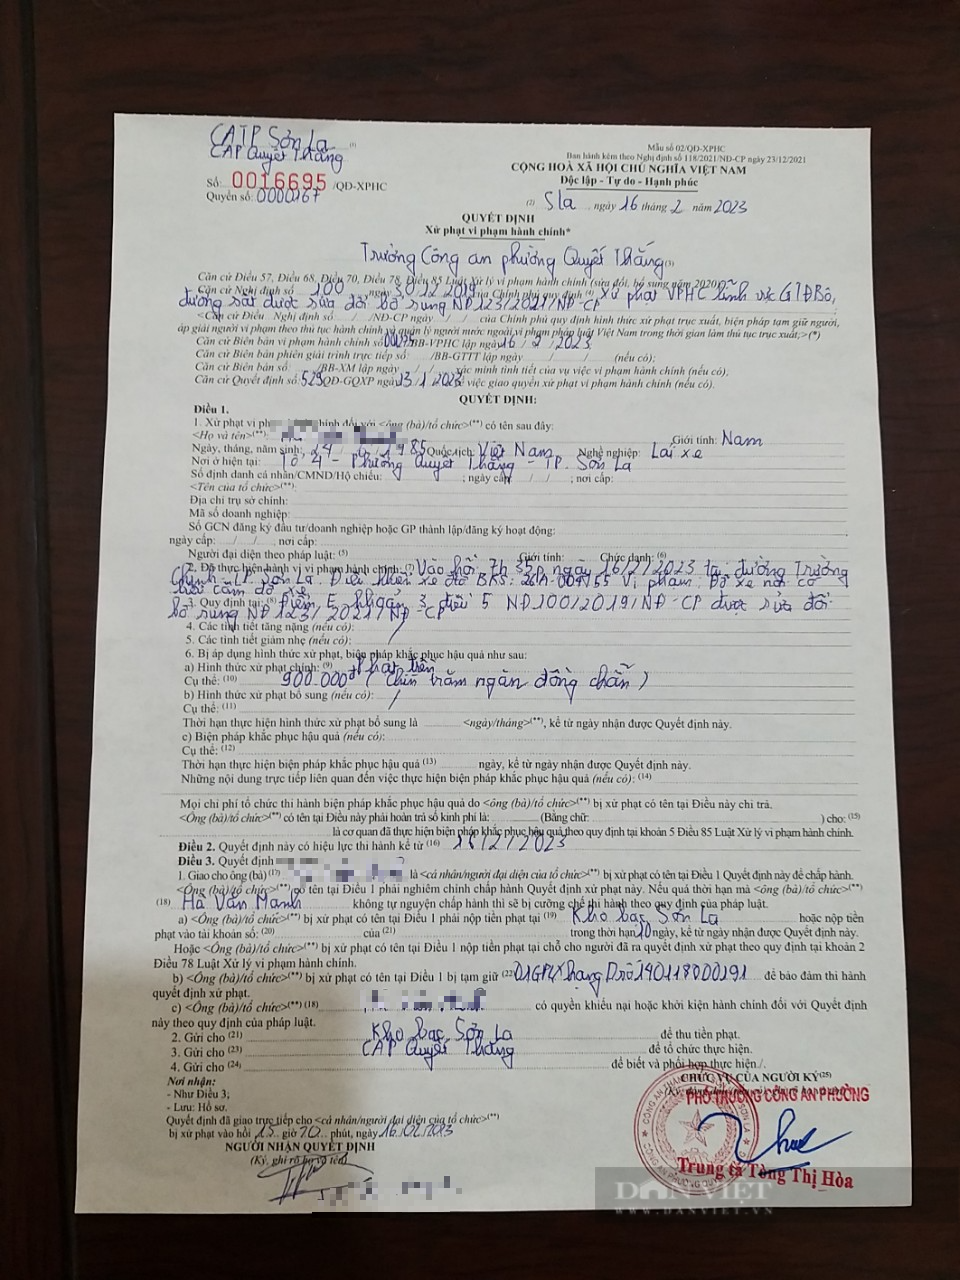 CATP Sơn La (1)
CAP Quyết Thắng
Mẫu số 02/QĐ-XPHC
Ban hành kèm theo Nghị định số 118/2021/NĐ-CP ngày 23/12/2021
CỘNG HOÀ XÃ HỘI CHỦ NGHĨA VIỆT NAM
Độc lập - Tự do - Hạnh phúc
Số: 0016695 /QĐ-XPHC
Quyển số: 0000167
(2) Sla , ngày 16 tháng 2 năm 2023
QUYẾT ĐỊNH
Xử phạt vi phạm hành chính*
Trưởng Công an phường Quyết Thắng (3)
Căn cứ Điều 57, Điều 68, Điều 70, Điều 78, Điều 85 Luật Xử lý vi phạm hành chính (sửa đổi, bổ sung năm 2020);
Căn cứ Nghị định số 100 ngày 30/12/2019 của Chính phủ quy định (4) xử phạt VPHC lĩnh vực GTĐBộ,
đường sắt được sửa đổi bổ sung NĐ 123/2021/NĐ-CP
<Căn cứ Điều Nghị định số / /NĐ-CP ngày / / của Chính phủ quy định hình thức xử phạt trục xuất, biện pháp tạm giữ người,
áp giải người vi phạm theo thủ tục hành chính và quản lý người nước ngoài vi phạm pháp luật Việt Nam trong thời gian làm thủ tục trục xuất;>(*)
Căn cứ Biên bản vi phạm hành chính số /BB-VPHC lập ngày 16/2/2023
Căn cứ Biên bản phiên giải trình trực tiếp số: /BB-GTTT lập ngày / / (nếu có);
Căn cứ Biên bản số /BB-XM lập ngày / / xác minh tình tiết của vụ việc vi phạm hành chính (nếu có);
Căn cứ Quyết định số: 529 QĐ-GQXP ngày 13/1/2023 về việc giao quyền xử phạt vi phạm hành chính (nếu có).
QUYẾT ĐỊNH:
Điều 1.
1. Xử phạt vi hành chính đối với <ông (bà)/tổ chức>(**) có tên sau đây:
<Họ và tên>(**): Giới tính: Nam
Ngày, tháng, năm sinh: 1985 Quốc tịch: Việt Nam Nghề nghiệp: Lái xe
Nơi ở hiện tại: Tổ 4 - Phường Quyết Thắng - TP. Sơn La
Số định danh cá nhân/CMND/Hộ chiếu: ; ngày cấp: / / ; nơi cấp:
<Tên của tổ chức>(**):
Địa chỉ trụ sở chính:
Mã số doanh nghiệp:
Số GCN đăng ký đầu tư/doanh nghiệp hoặc GP thành lập/đăng ký hoạt động:
ngày cấp: / / ; nơi cấp:
Người đại diện theo pháp luật: (5) Giới tính: Chức danh: (6)
2. Đã thực hiện hành vi vi phạm hành chính: (7) Vào hồi 7h 35p ngày 16/2/2023 tại đường Trường
Chinh - TP Sơn La. Điều khiển xe ôtô BKS: vi phạm: Đỗ xe nơi có
biển cấm đỗ xe
3. Quy định tại: (8) Điểm E khoản 3 điều 5 NĐ 100/2019/NĐ-CP được sửa đổi
bổ sung NĐ 123/2021/NĐ-CP
4. Các tình tiết tăng nặng (nếu có):
5. Các tình tiết giảm nhẹ (nếu có):
6. Bị áp dụng hình thức xử phạt, biện pháp khắc phục hậu quả như sau:
a) Hình thức xử phạt chính: (9) Phạt tiền
Cụ thể: (10) 900.000đ (Chín trăm ngàn đồng chẵn)
b) Hình thức xử phạt bổ sung (nếu có):
Cụ thể: (11)
Thời hạn thực hiện hình thức xử phạt bổ sung là <ngày/tháng>(**), kể từ ngày nhận được Quyết định này.
c) Biện pháp khắc phục hậu quả (nếu có):
Cụ thể: (12)
Thời hạn thực hiện biện pháp khắc phục hậu quả (13) ngày, kể từ ngày nhận được Quyết định này.
Những nội dung trực tiếp liên quan đến việc thực hiện biện pháp khắc phục hậu quả (nếu có): (14)
Mọi chi phí tổ chức thi hành biện pháp khắc phục hậu quả do <ông (bà)/tổ chức>(**) bị xử phạt có tên tại Điều này chi trả.
<Ông (bà)/tổ chức>(**) có tên tại Điều này phải hoàn trả số kinh phí là: (Bằng chữ: ) cho: (15)
là cơ quan đã thực hiện biện pháp khắc phục hậu quả theo quy định tại khoản 5 Điều 85 Luật Xử lý vi phạm hành chính.
Điều 2. Quyết định này có hiệu lực thi hành kể từ (16) 16/2/2023
Điều 3. Quyết định
1. Giao cho ông (bà) (17) là <cá nhân/người đại diện của tổ chức>(**) bị xử phạt có tên tại Điều 1 Quyết định này để chấp hành.
<Ông (bà)/tổ chức>(**) có tên tại Điều 1 phải nghiêm chỉnh chấp hành Quyết định xử phạt này. Nếu quá thời hạn mà <ông (bà)/tổ chức>(**)
(18) Hà Văn Mạnh không tự nguyện chấp hành thì sẽ bị cưỡng chế thi hành theo quy định của pháp luật.
a) <Ông (bà)/tổ chức>(**) bị xử phạt có tên tại Điều 1 phải nộp tiền phạt tại (19) Kho bạc Sơn La hoặc nộp tiền
phạt vào tài khoản số: (20) của (21) trong thời hạn 10 ngày, kể từ ngày nhận được Quyết định này.
Hoặc <Ông (bà)/tổ chức>(**) bị xử phạt có tên tại Điều 1 nộp tiền phạt tại chỗ cho người đã ra quyết định xử phạt theo quy định tại khoản 2
Điều 78 Luật Xử lý vi phạm hành chính.
b) <Ông (bà)/tổ chức>(**) bị xử phạt có tên tại Điều 1 bị tạm giữ (22) 01GPLX hạng D số 140118000191 để bảo đảm thi hành
quyết định xử phạt.
c) <Ông (bà)/tổ chức>(**) (18) có quyền khiếu nại hoặc khởi kiện hành chính đối với Quyết định
này theo quy định của pháp luật.
2. Gửi cho (21) Kho bạc Sơn La để thu tiền phạt.
3. Gửi cho (23) CAP Quyết Thắng để tổ chức thực hiện.
4. Gửi cho (24) để biết và phối hợp thực hiện./.
Nơi nhận:
- Như Điều 3;
- Lưu: Hồ sơ.
CHỨC VỤ CỦA NGƯỜI KÝ(25)
PHÓ TRƯỞNG CÔNG AN PHƯỜNG
Quyết định đã giao trực tiếp cho <cá nhân/người đại diện của tổ chức>(**)
bị xử phạt vào hồi 15 giờ phút, ngày 16/02/2023
NGƯỜI NHẬN QUYẾT ĐỊNH
(Ký, ghi rõ họ và tên)
Trung tá Tòng Thị Hòa
DANVIET
WWW.DANVIET.VN